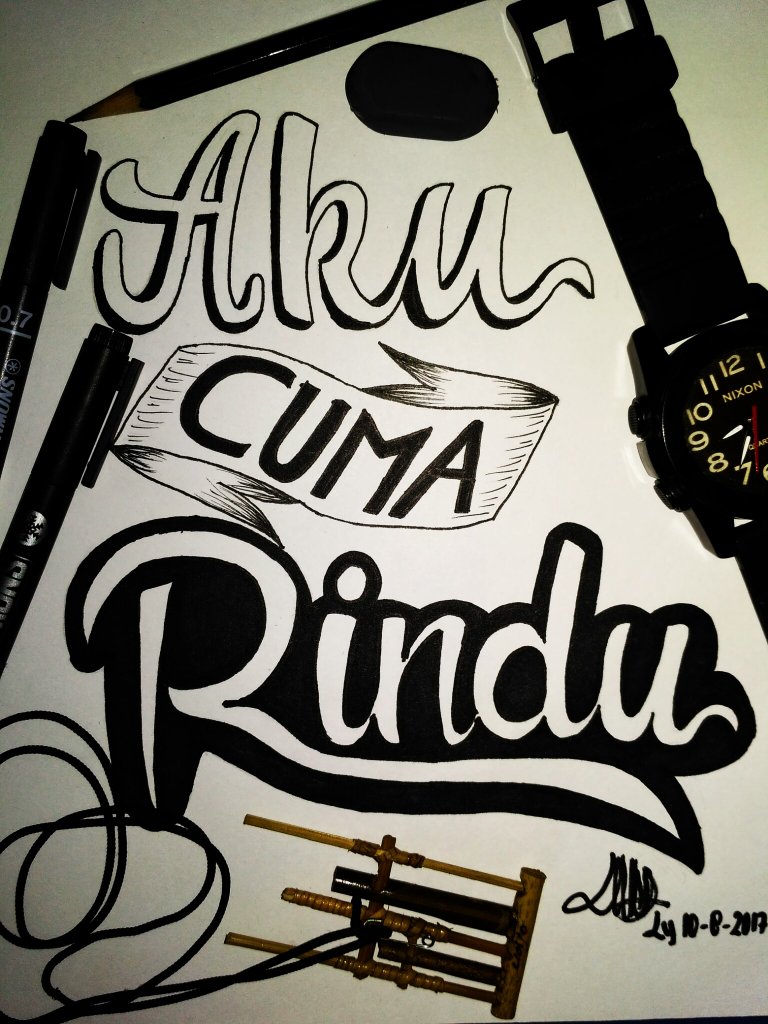 Aku
CUMA
Rindu
0.7
SNOWMAN
11 12 1
10
9
8
7
6
NIXON
Ly 10-8-2017